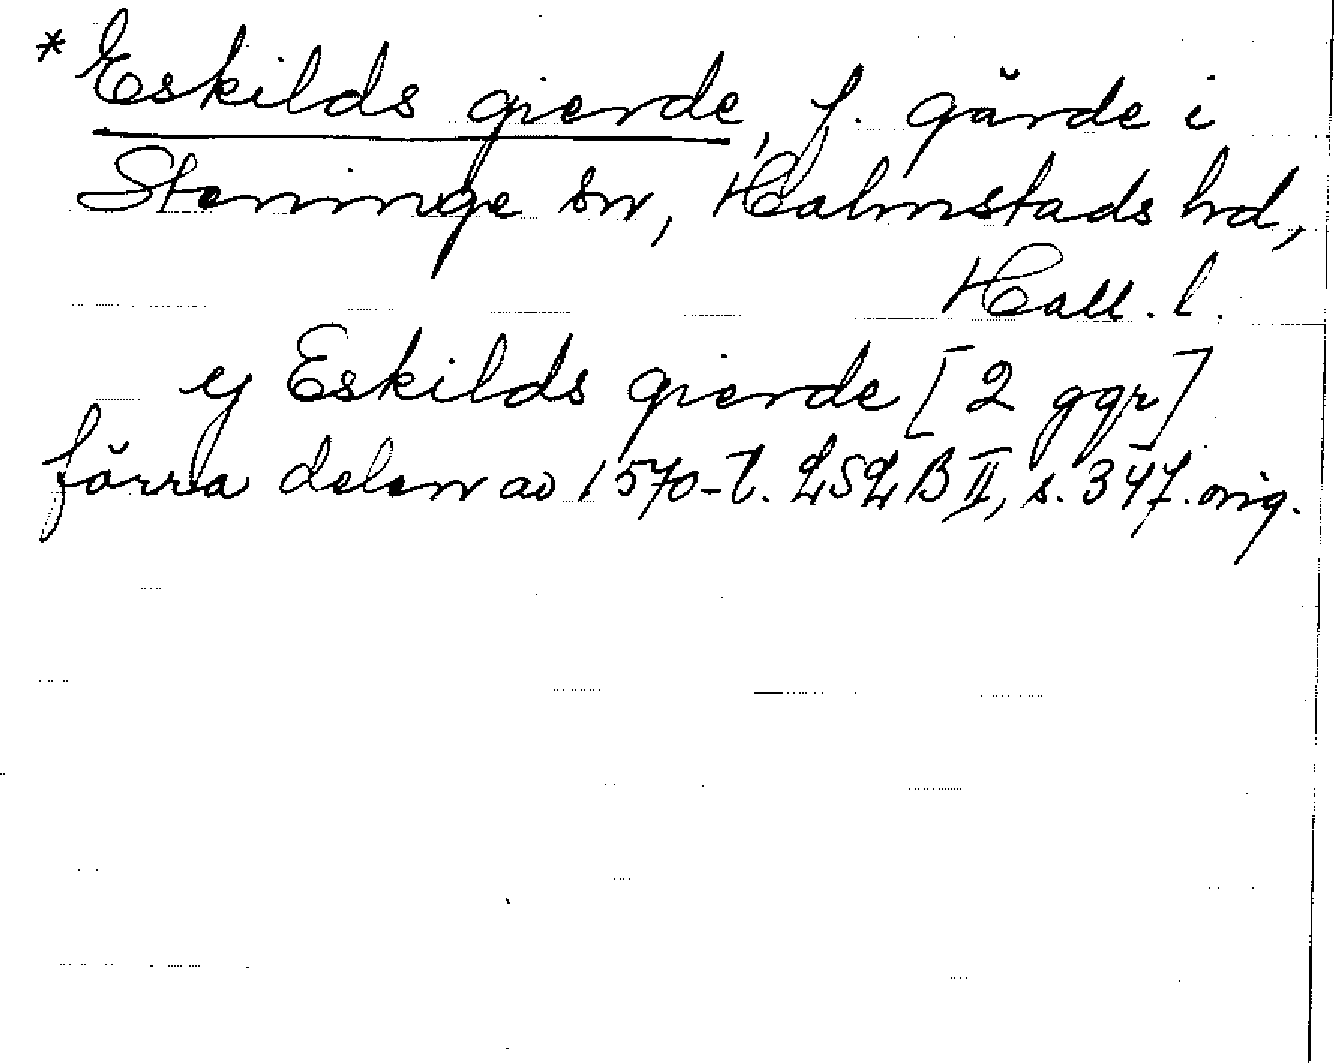 * Eskilds gierde, f. gärde i
Steninge sn, Halmstads hd,
Hall. l.
ej Eskilds gierde [2 ggr]
förra delen av 1570-t. LSLB II, s. 347. orig.